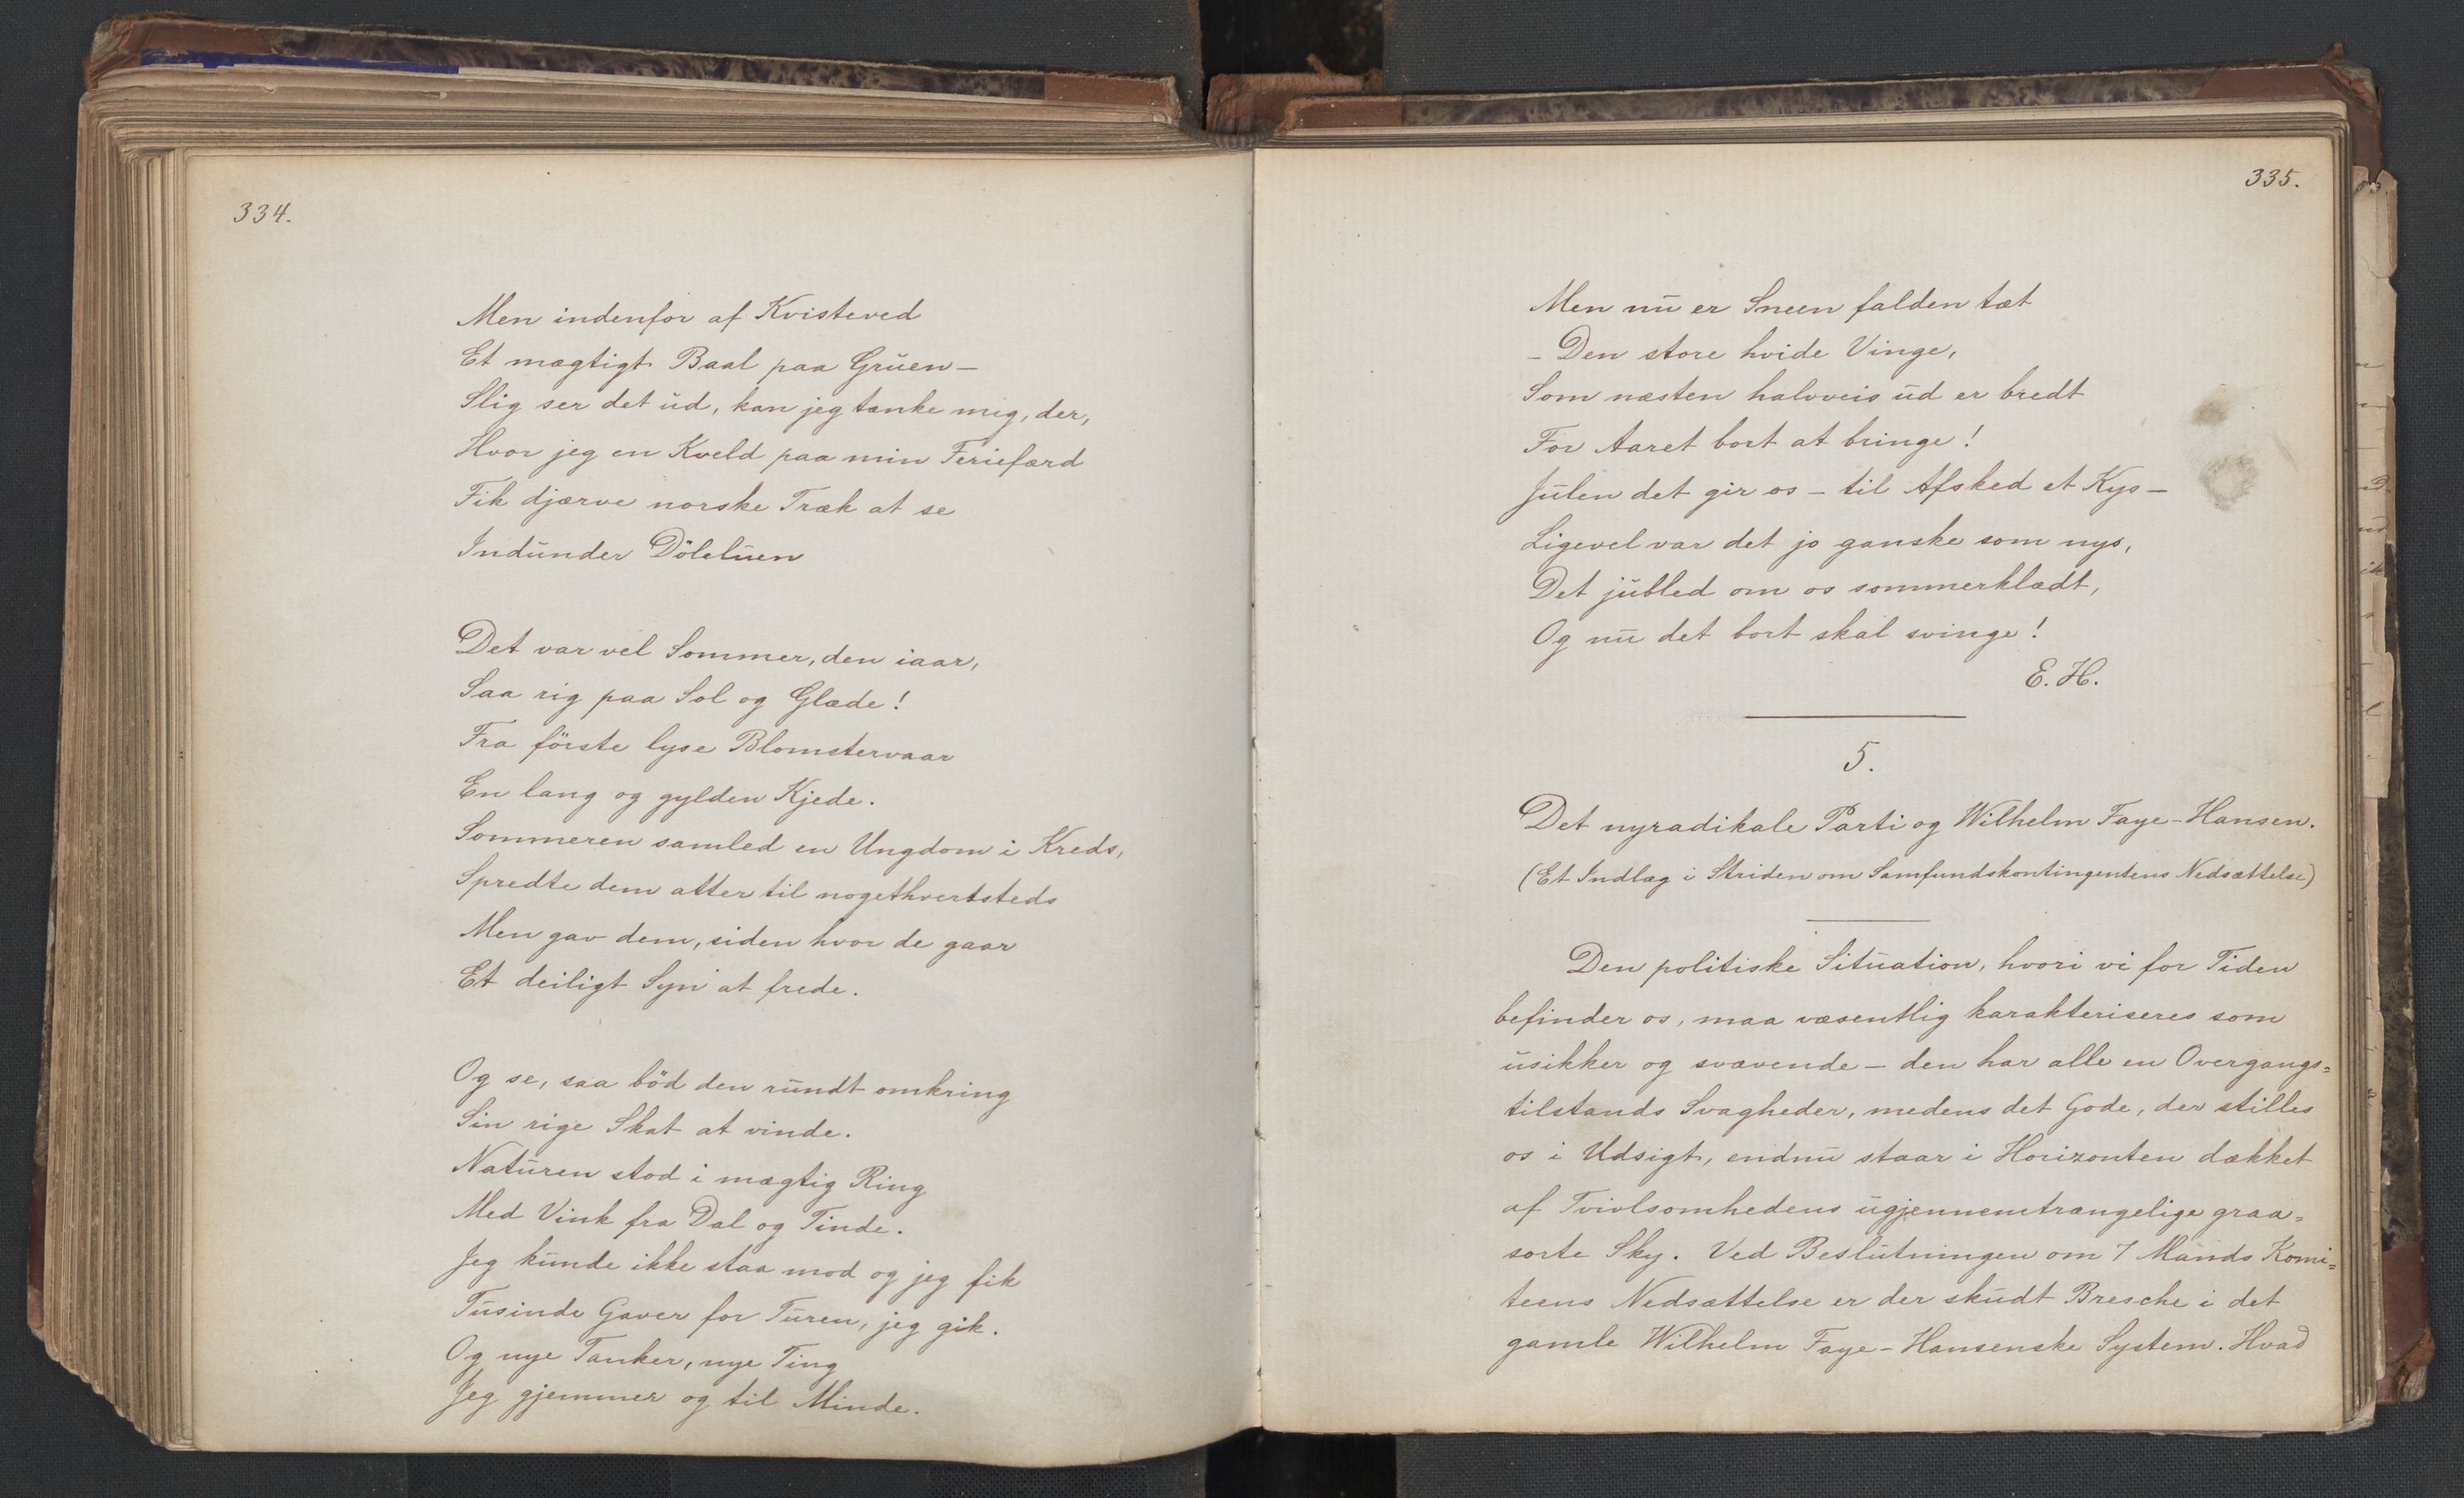 334.
Men indenfor af Kvisteved
Et mægtigt Baal paa Gruen—
Slig ser det ud, kan jeg tænke mig, der,
Hvor jeg en Kveld paa min Feriefærd
Fik djærve norske Træk at se
Indunder Döleluen
Det var vel Sommer, den iaar,
Saa rig paa Sol og Glæde!
Fra förste lyse Blomstervaar
En lang og gylden Kjede.
Sommeren samled en Ungdom i Kreds,
Spredte dem atter til nogethvertsteds
Men gav dem, siden hvor de gaar
Et deiligt Syn at frede.
Og se, saa böd den rundt omkring
Sin rige Skat at vinde.
Naturen stod i mægtig Ring
Med Vink fra Dal og Tinde.
Jeg kunde ikke staa mod og jeg fik
Tusinde Gaver for Turen, jeg gik.
Og nye Tanker, nye Ting
Jeg gjemmer og til Minde.
335.
Men nu er Sneen falden tæt
– Den store hvide Vinge,
Som næsten halvveis ud er bredt
For Aaret bort at bringe!
Julen det gir os – til Afsked et Kys –
Ligevel var det jo ganske som nys,
Det jubled om os sommerklædt,
Og nu det bort skal svinge!
E. H.
5.
Det nyradikale Parti og Wilhelm Faye-Hansen.
(Et Indlæg i Striden om Samfundskontingentens Nedsættelse)
Den politiske Situation, hvori vi for Tiden
befinder os, maa væsentlig karakteriseres som
usikker og svævende – den har alle en Overgangs=
tilstands Svagheder, medens det Gode, der stilles
os i Udsigt, endnu staar i Horizonten dækket
af Tvivlsomhedens ugjennemtrængelige graa=
sorte Sky. Ved Beslutningen om 7 Mands Komi=
teens Nedsættelse er der skudt Bresche i det
gamle Wilhelm Faye-Hansenske System. Hvad